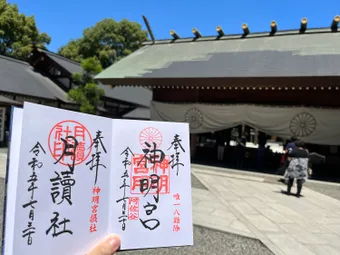 奉拝
神明宮
唯一八難除
阿佐谷
神明宮
令和五年七月三日
奉拝
神明宮摂社
月讀社
月讀社
令和五年七月三日